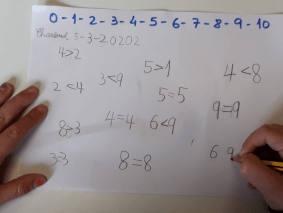 0 - 1 - 2 - 3 - 4 - 5 - 6 - 7 - 8 - 9 - 10
5-3-20202
4>2
3<9
5>1
4<8
2<4
5=5
9=9
8>3
4=4
6<9
3=3
8=8
6 9